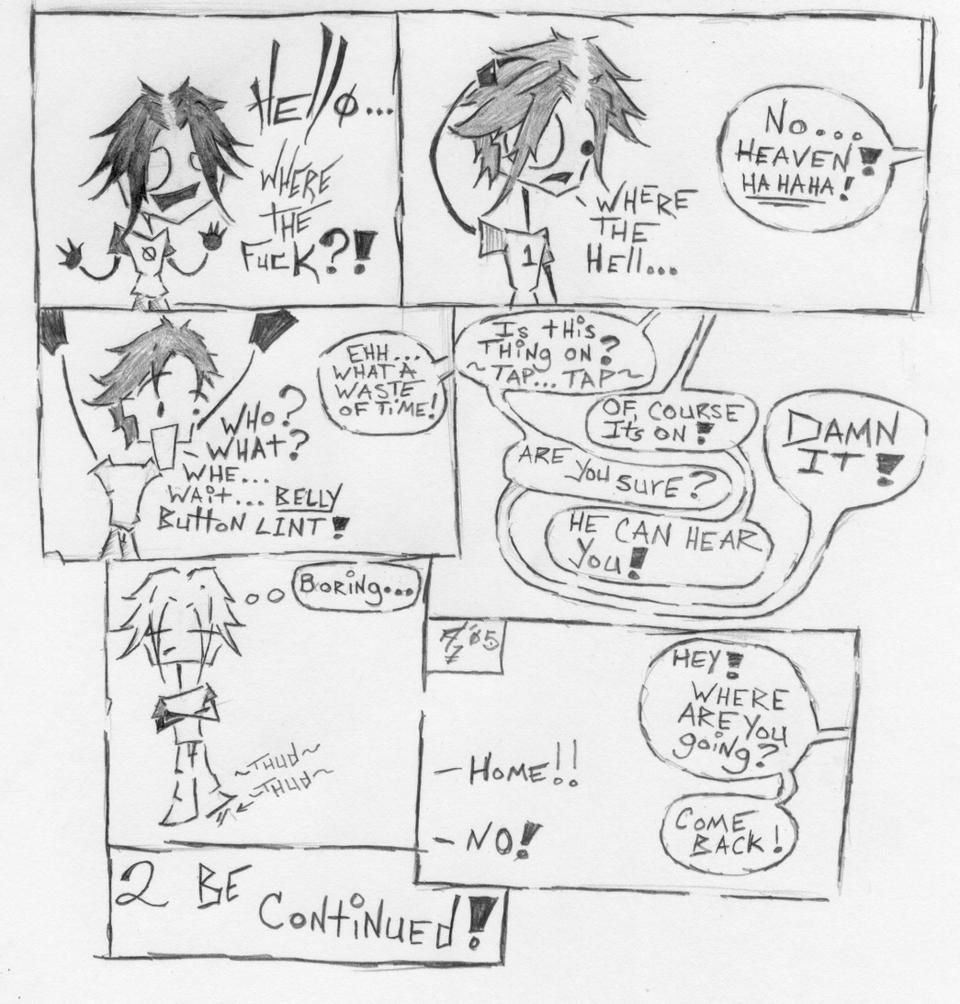 HEllø...
WHERE
THE
FucK?!
0
WHERE
THE
HEll...
1
No...
HEAVEN!
HA HAHA!
WHO?
WHAT?
WHE...
WAiT... BELLY
ButtoN LINT!
EHH...
WHAT A
WASTE
OF TiME!
Is tHis
THiNg ON?
~TAP... TAP~
OF COURSE
Its ON!
ARE YOU SURE?
HE CAN HEAR
YOU!
DAMN
IT!
BORiNg...
4
~THUD~
~THUD~
'05
HEY!
WHERE
ARE YOU
goiNg?
- HOME!!
- NO!
COME
BACK!
2 BE
CoNtiNUEd!